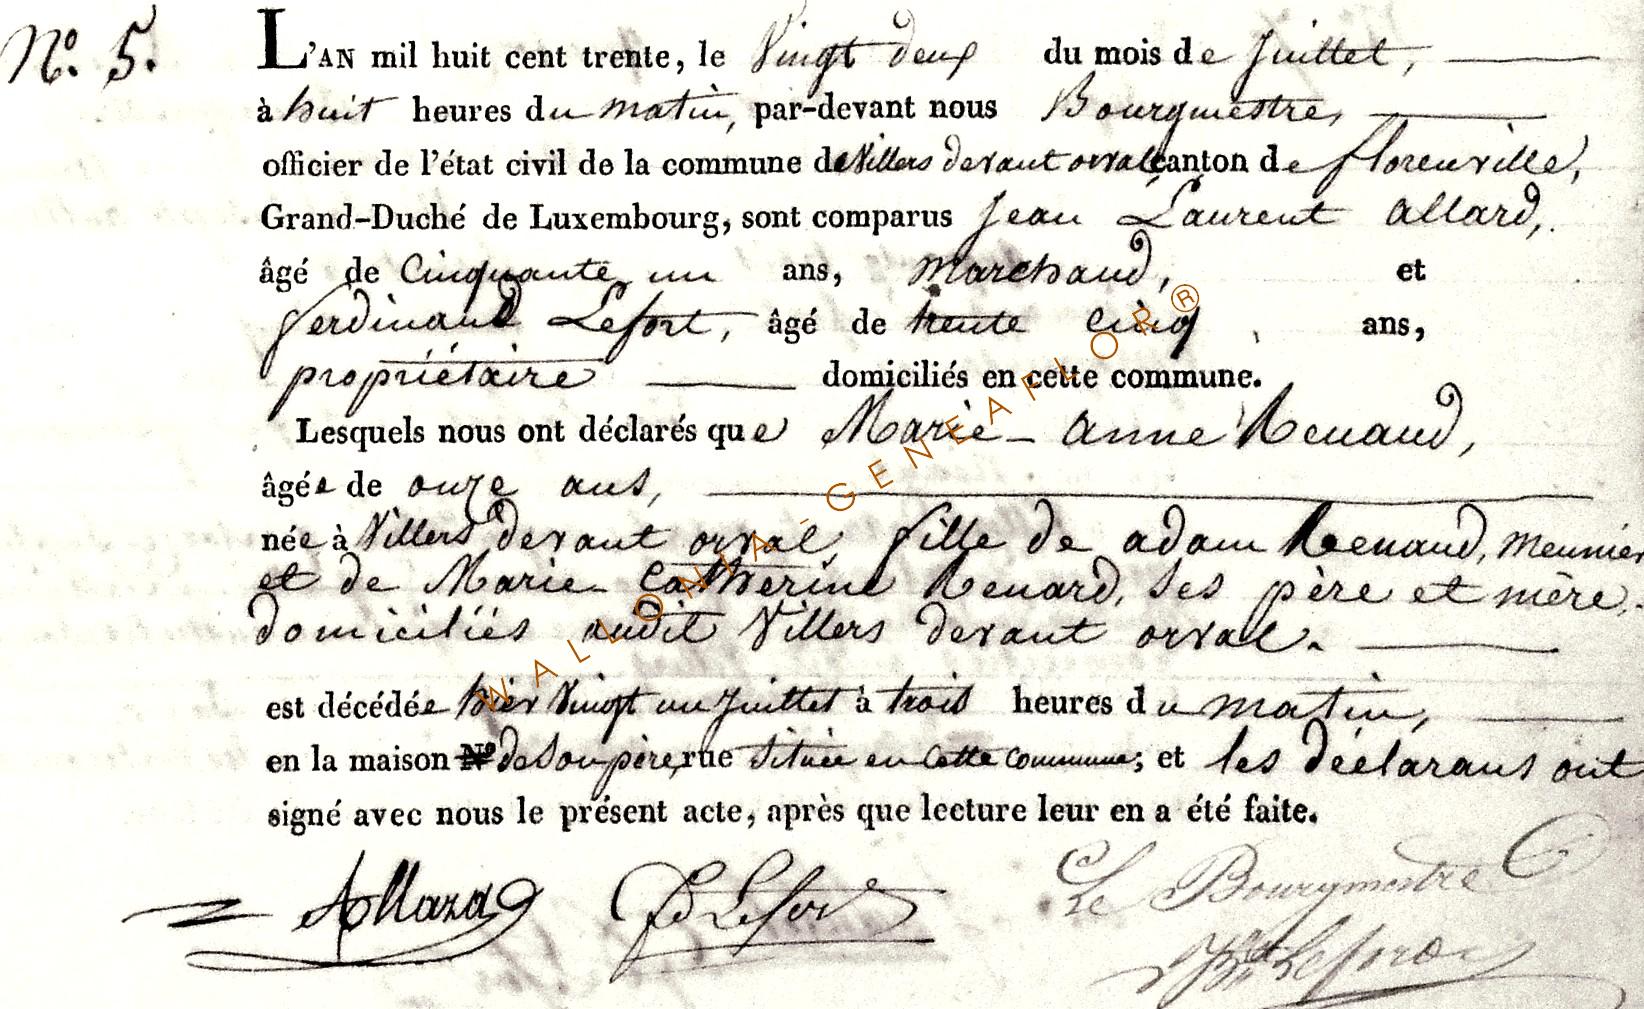 N.º 5.
L'AN mil huit cent trente, le Vingt deux du mois de Juillet,
à huit heures du matin, par-devant nous Bourgmestre,
officier de l'état civil de la commune de Villers devant orval, canton de florenville,
Grand-Duché de Luxembourg, sont comparus Jean Laurent allard,
âgé de Cinquante un ans, marchand, et
ferdinand Lefort, âgé de trente cinq ans,
propriétaire domiciliés en cette commune.
Lesquels nous ont déclarés que Marie - anne Renaud,
âgée de onze ans,
née à Villers devant orval, fille de adam Renaud, meunier
et de Marie Catherine Renard, ses père et mère,
domiciliés audit Villers devant orval.
est décédée hier Vingt un Juillet à trois heures du matin,
en la maison N.º de son père, rue située en cette commune; et les déclarans ont
signé avec nous le présent acte, après que lecture leur en a été faite.
Allard Lefort Le Bourgmestre
Lefort
WALLONIA - GENEAFLOR ®